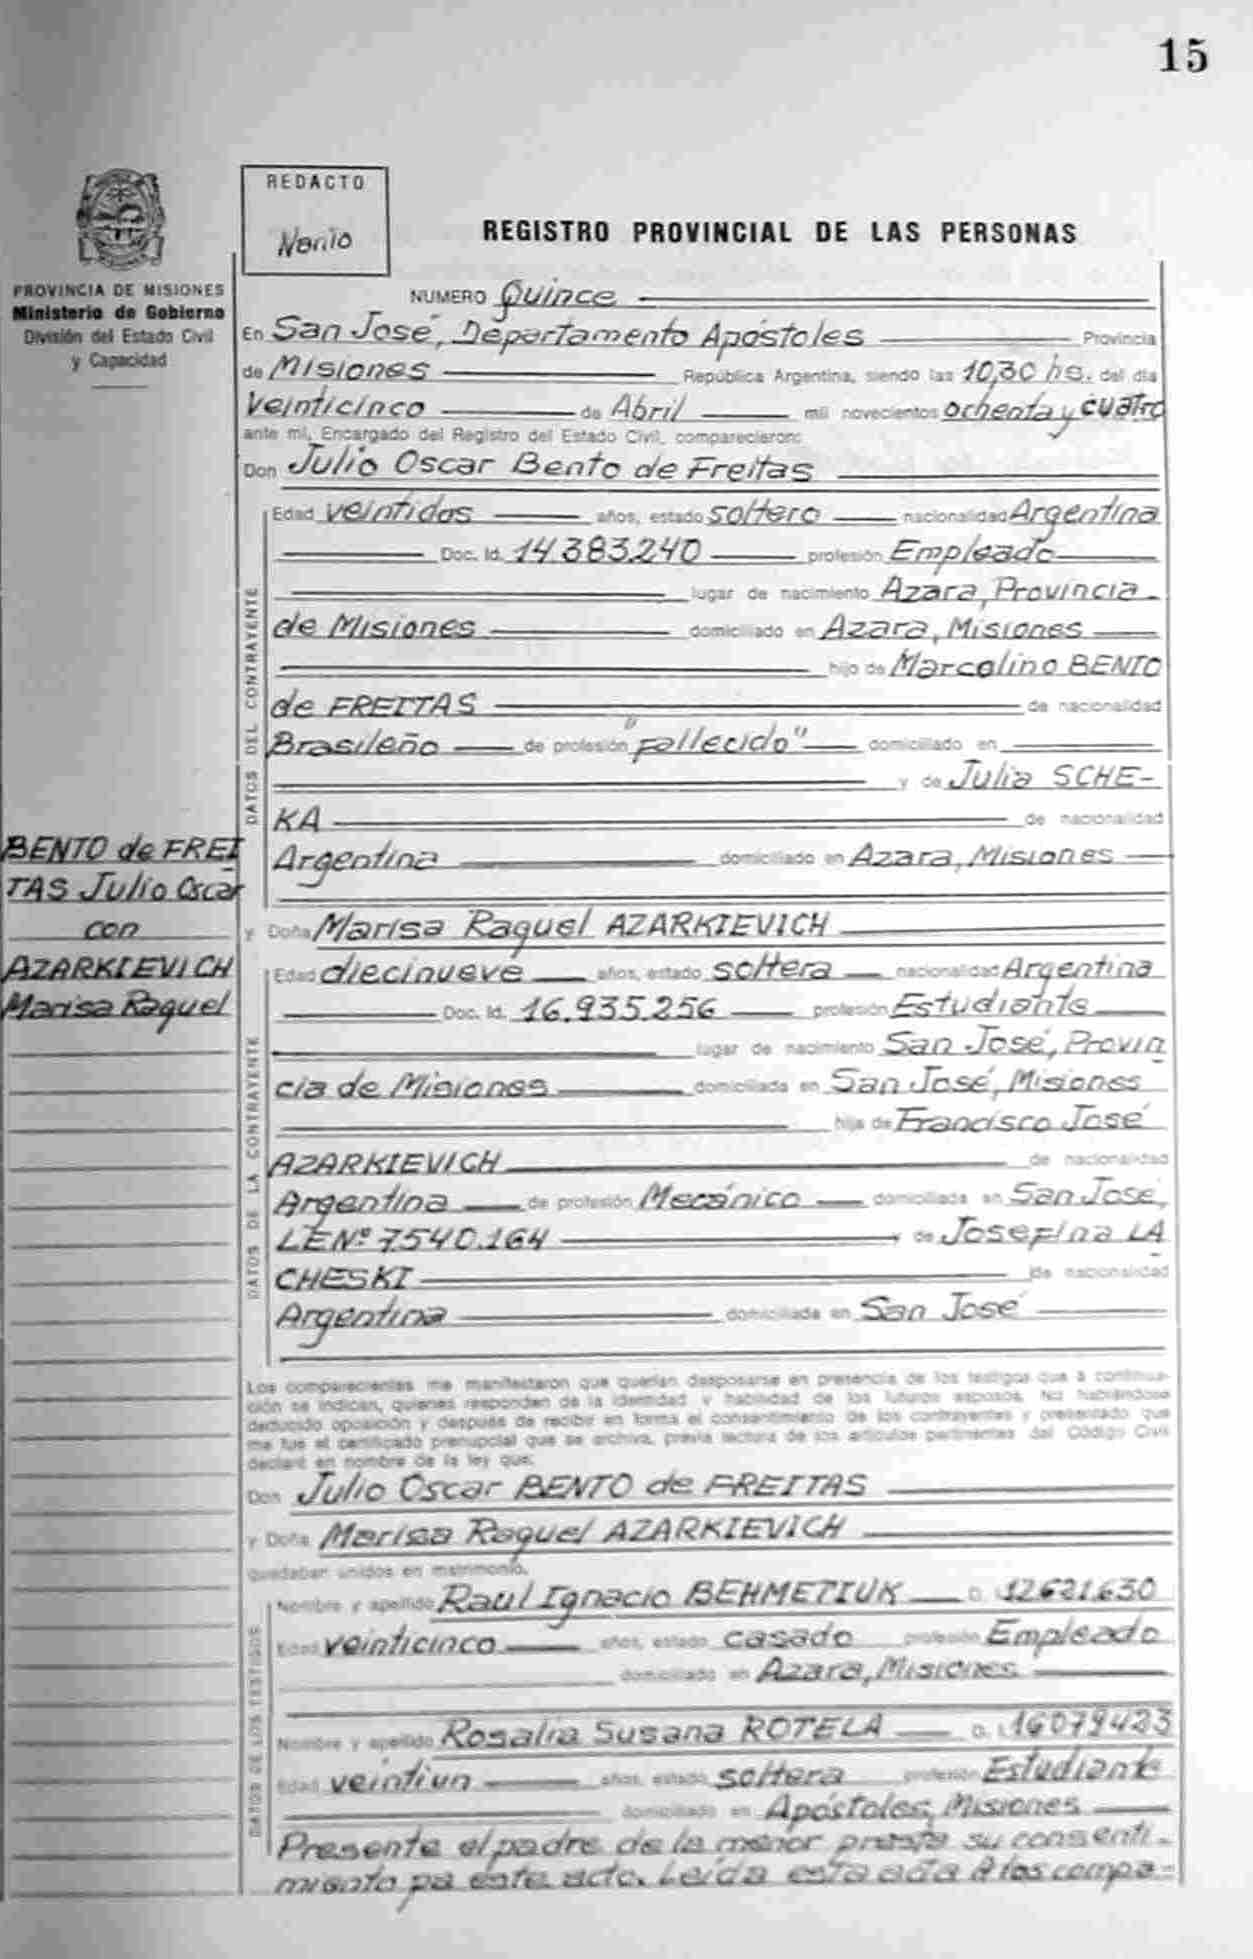 15
REDACTO
REGISTRO PROVINCIAL DE LAS PERSONAS
PROVINCIA DE MISIONES
Ministerio de Gobierno
División del Estado Civil
y Capacidad
NUMERO Quince
En San José, Departamento Apóstoles Provincia
de Misiones República Argentina, siendo las 10,30 hs. del día
Veinticinco de Abril mil novecientos ochenta y cuatro
ante mi, Encargado del Registro del Estado Civil, comparecieron:
Don Julio Oscar Bento de Freitas
DATOS DEL CONTRAYENTE
Edad veintidos años, estado soltero nacionalidad Argentina
Doc. Id. 14.383.240 profesión Empleado
lugar de nacimiento Azara, Provincia
de Misiones domiciliado en Azara, Misiones
hijo de Marcelino BENTO
de FREITAS de nacionalidad
Brasileño de profesión "fallecido" domiciliado en
y de Julia SCHE-
KA de nacionalidad
Argentina domiciliado en Azara, Misiones
BENTO de FREI
TAS Julio Oscar
con
AZARKIEVICH
Marisa Raquel
y Doña Marisa Raquel AZARKIEVICH
DATOS DE LA CONTRAYENTE
Edad diecinueve años, estado soltera nacionalidad Argentina
Doc. Id. 16.935.256 profesión Estudiante
lugar de nacimiento San José, Provin
cia de Misiones domiciliada en San José, Misiones
hija de Francisco José
AZARKIEVICH de nacionalidad
Argentina de profesión Mecánico domiciliado en San José,
LE Nº 7540.164 y de Josefina LA
CHESKI de nacionalidad
Argentina domiciliada en San José
Los comparecientes me manifestaron que querían desposarse en presencia de los testigos que a continua-
ción se indican, quienes responden de la identidad y habilidad de los futuros esposos. No habiéndose
deducido oposición y después de recibir en forma el consentimiento de los contrayentes y presentado que
me fue el certificado prenupcial que se archiva, previa lectura de los artículos pertinentes del Código Civil
declaré en nombre de la ley que:
Don Julio Oscar BENTO de FREITAS
y Doña Marisa Raquel AZARKIEVICH
quedaban unidos en matrimonio.
DATOS DE LOS TESTIGOS
Nombre y apellido Raul Ignacio BEHMETIUK D. I. 12.621.630
Edad veinticinco años, estado casado profesión Empleado
domiciliado en Azara, Misiones
Nombre y apellido Rosalia Susana ROTELA D. I. 16079423
Edad veintiun años, estado soltera profesión Estudiante
domiciliado en Apóstoles, Misiones
Presente el padre de la menor presta su consenti-
miento pa este acto. Leída esta acta a los compa-